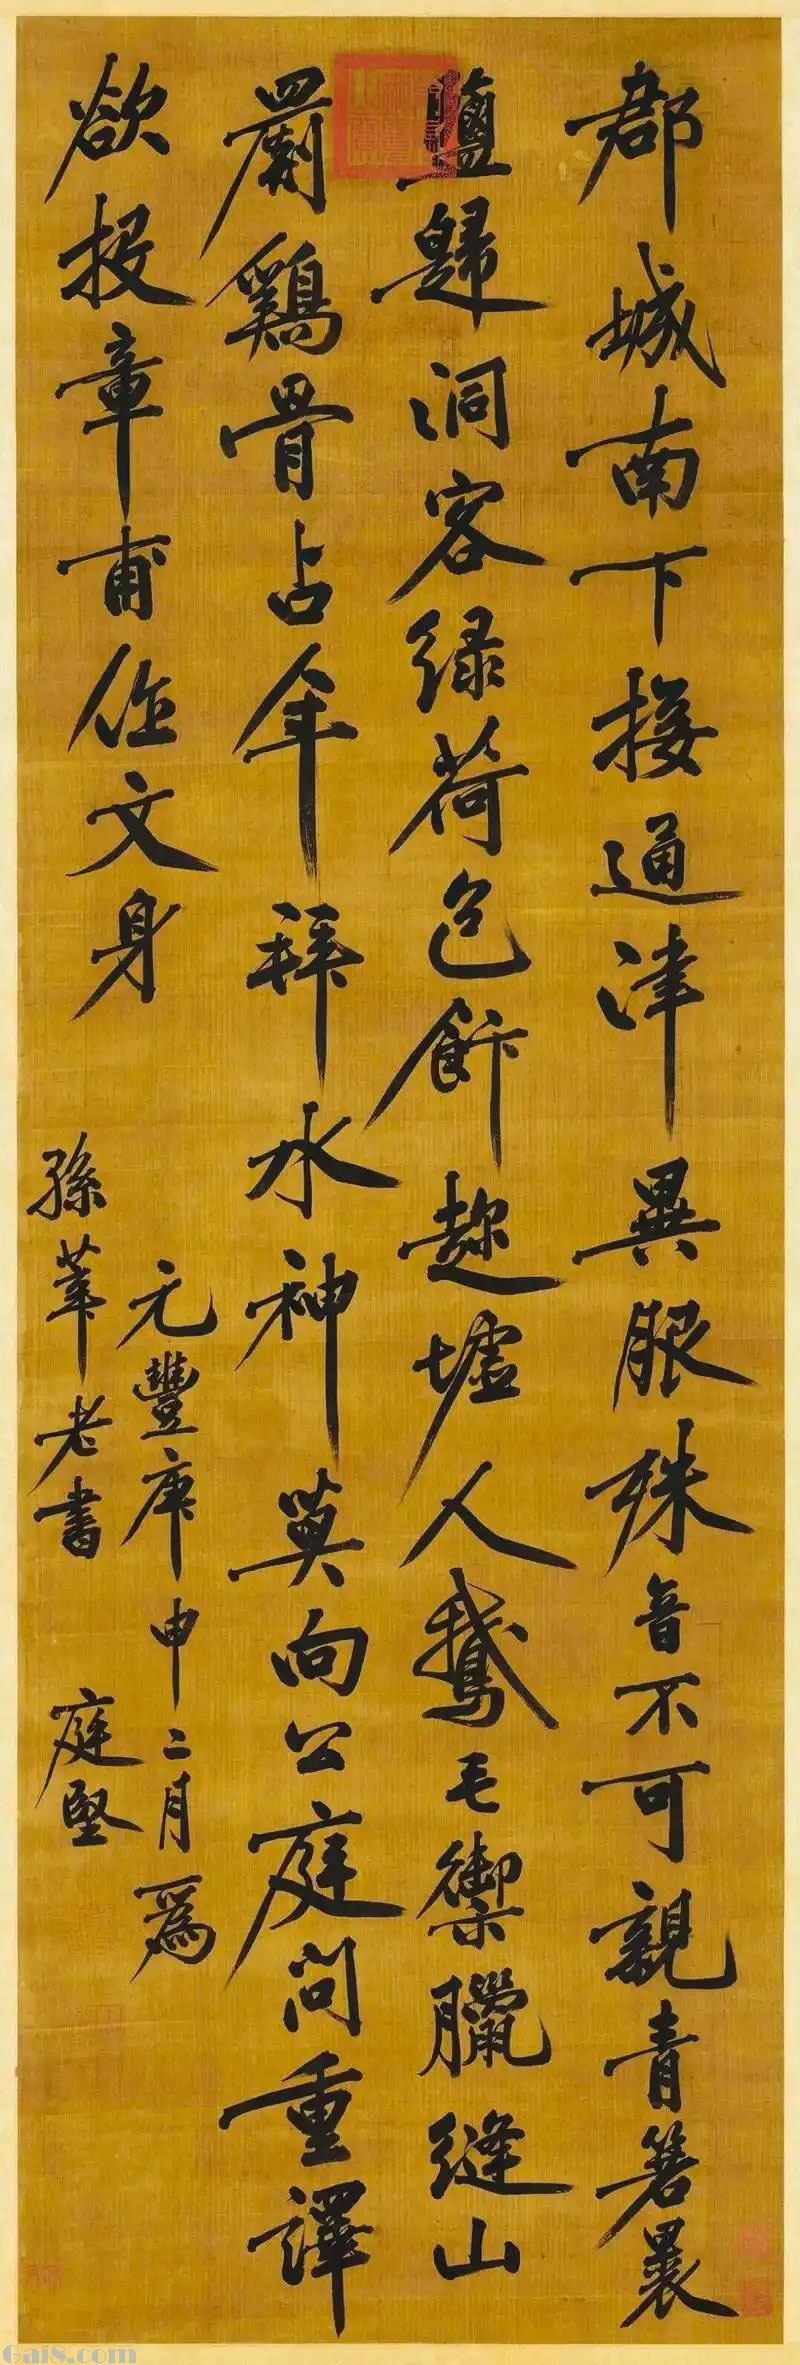 郡城南下接通津異服殊音不可親青箬裹
鹽歸洞客綠荷包飰趂墟人鵞毛御臘縫山
罽鷄骨占年拜水神莫向公庭問重譯
欲投章甫作文身
元豐庚申二月為
孫莘老書 庭堅
Gai8.com